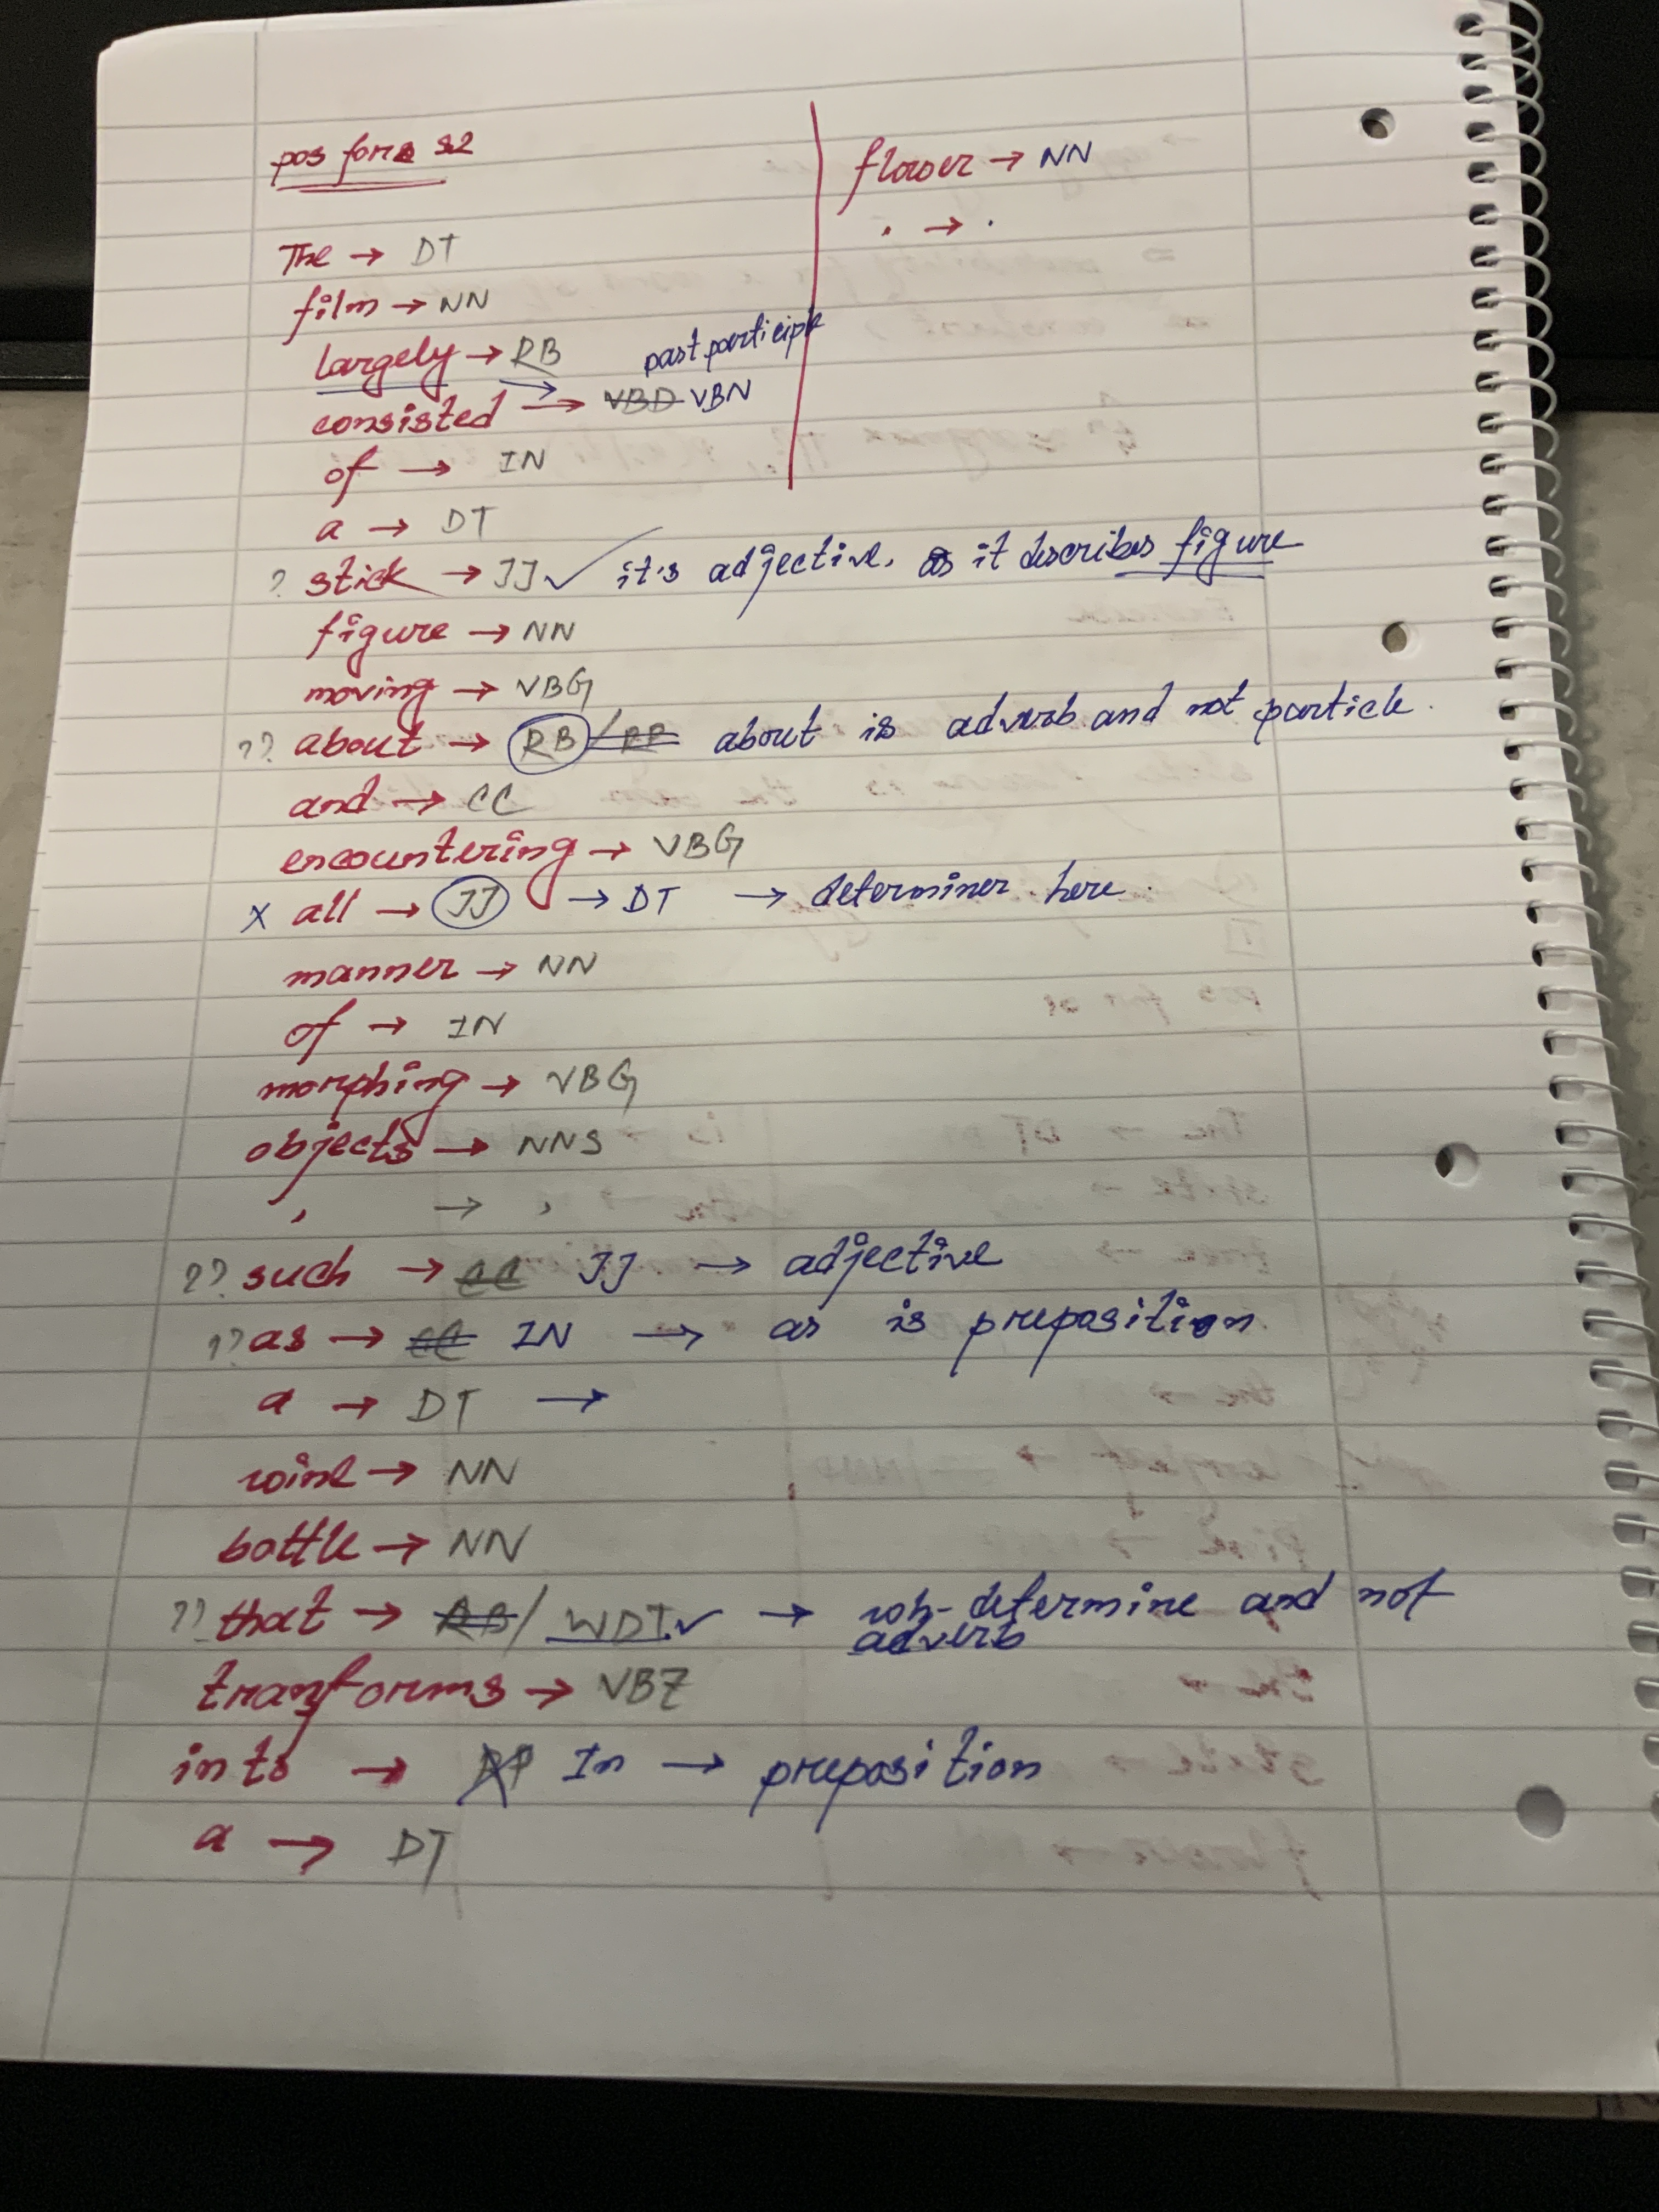 pos for s2
The → DT
film → NN
largely → RB
past participle
consisted → VBD VBN
of → IN
a → DT
? stick → JJ ✓ it's adjective, as it describes figure
figure → NN
moving → VBG
?? about → RB / RP about is adverb and not particle.
and → CC
encountering → VBG
x all → JJ → DT → determiner here.
manner → NN
of → IN
morphing → VBG
objects → NNS
, → ,
?? such → CC JJ → adjective
?? as → CC IN → as is preposition.
a → DT →
wine → NN
bottle → NN
?? that → RB / WDT ✓ → wh-determine and not
adverb
transforms → VBZ
into → RP In → preposition
a → DT
flower → NN
. → .